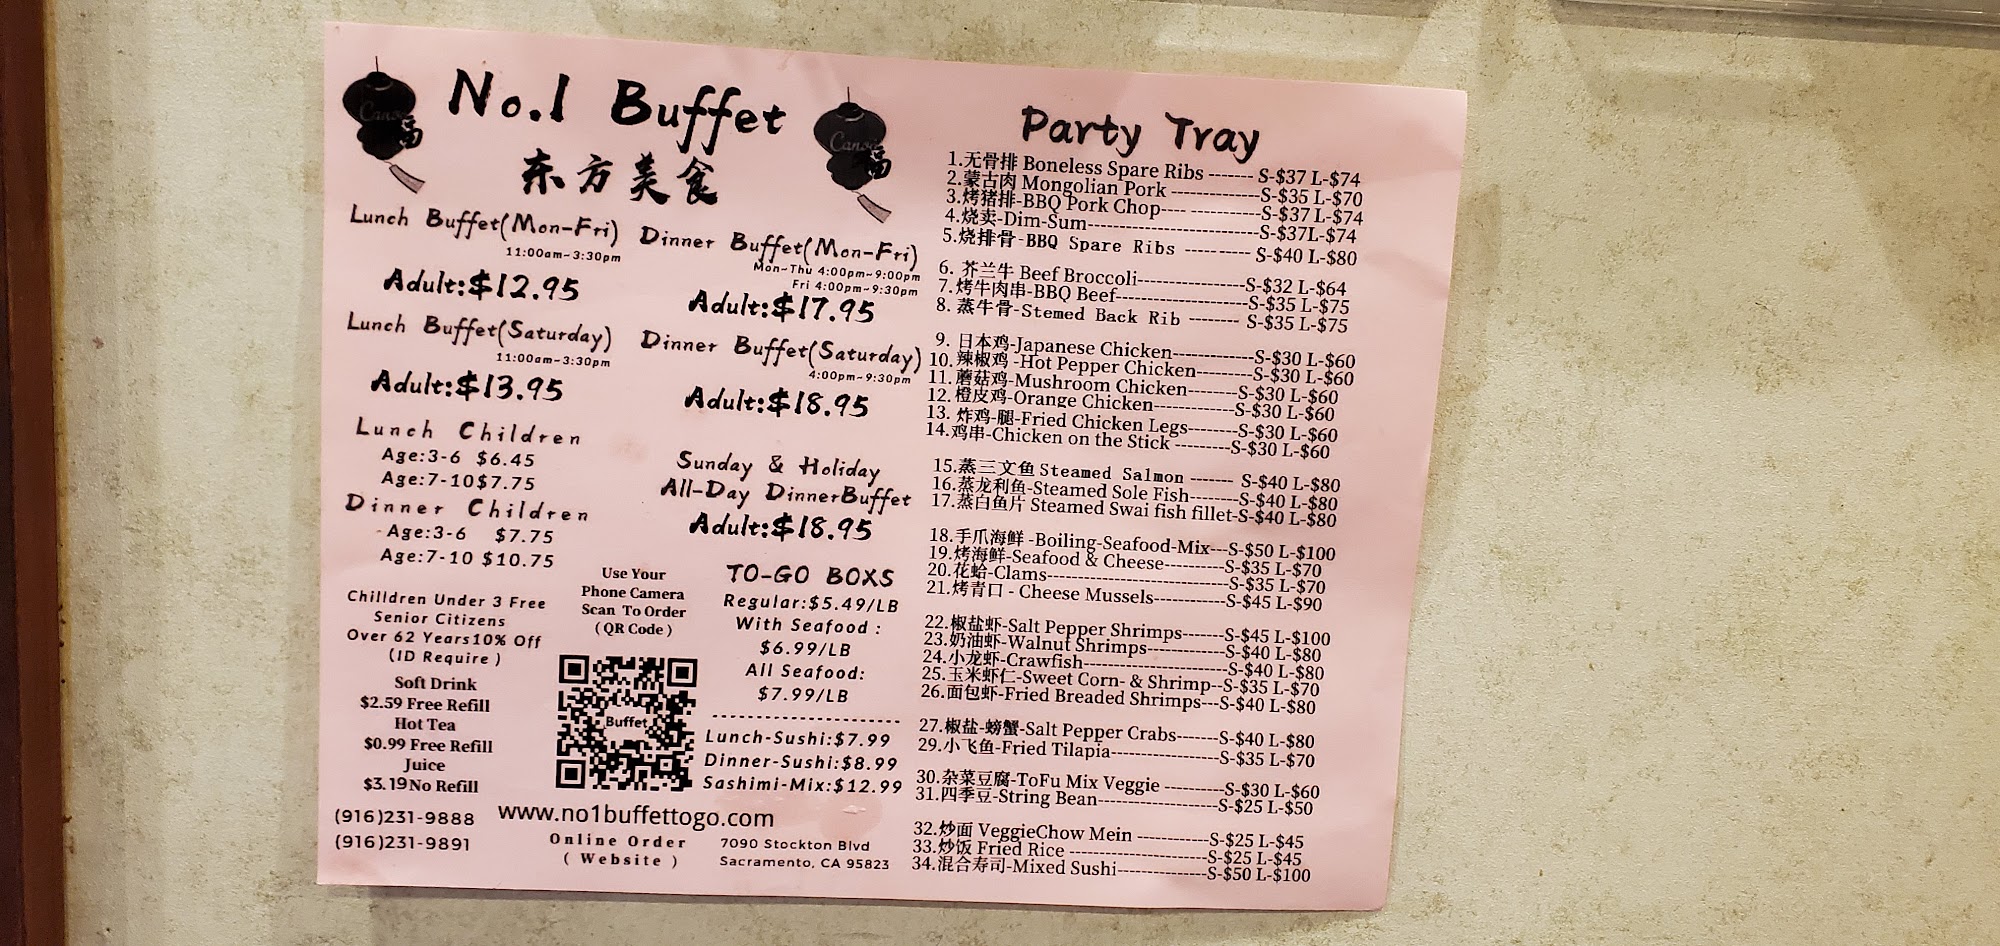 No.1 Buffet
东方美食
Canoe
福
Canoe
福
Lunch Buffet(Mon-Fri)
11:00am~3:30pm
Adult:$12.95
Lunch Buffet(Saturday)
11:00am~3:30pm
Adult:$13.95
Lunch Children
Age:3-6 $6.45
Age:7-10$7.75
Dinner Children
Age:3-6 $7.75
Age:7-10 $10.75
Chilldren Under 3 Free
Senior Citizens
Over 62 Years10% Off
(ID Require )
Soft Drink
$2.59 Free Refill
Hot Tea
$0.99 Free Refill
Juice
$3.19No Refill
(916)231-9888
(916)231-9891
Dinner Buffet(Mon-Fri)
Mon~Thu 4:00pm~9:00pm
Fri 4:00pm~9:30pm
Adult:$17.95
Dinner Buffet(Saturday)
4:00pm~9:30pm
Adult:$18.95
Sunday & Holiday
All-Day DinnerBuffet
Adult:$18.95
Use Your
Phone Camera
Scan To Order
( QR Code )
Buffet
TO-GO BOXS
Regular:$5.49/LB
With Seafood :
$6.99/LB
All Seafood:
$7.99/LB
Lunch-Sushi:$7.99
Dinner-Sushi:$8.99
Sashimi-Mix:$12.99
www.no1buffettogo.com
Online Order
( Website )
7090 Stockton Blvd
Sacramento, CA 95823
Party Tray
1.无骨排 Boneless Spare Ribs ------- S-$37 L-$74
2.蒙古肉 Mongolian Pork --------------S-$35 L-$70
3.烤猪排-BBQ Pork Chop---- -----------S-$37 L-$74
4.烧卖-Dim-Sum---------------------------S-$37L-$74
5.烧排骨-BBQ Spare Ribs ----------S-$40 L-$80
6. 芥兰牛 Beef Broccoli-----------------S-$32 L-$64
7.烤牛肉串-BBQ Beef---------------------S-$35 L-$75
8. 蒸牛骨-Stemed Back Rib -------- S-$35 L-$75
9. 日本鸡-Japanese Chicken-------------S-$30 L-$60
10.辣椒鸡 -Hot Pepper Chicken---------S-$30 L-$60
11.蘑菇鸡-Mushroom Chicken--------S-$30 L-$60
12.橙皮鸡-Orange Chicken-------------S-$30 L-$60
13. 炸鸡-腿-Fried Chicken Legs--------S-$30 L-$60
14.鸡串-Chicken on the Stick ---------S-$30 L-$60
15.蒸三文鱼 Steamed Salmon ------- S-$40 L-$80
16.蒸龙利鱼-Steamed Sole Fish--------S-$40 L-$80
17.蒸白鱼片 Steamed Swai fish fillet-S-$40 L-$80
18.手爪海鲜 -Boiling-Seafood-Mix---S-$50 L-$100
19.烤海鲜-Seafood & Cheese----------S-$35 L-$70
20.花蛤-Clams-----------------------------S-$35 L-$70
21.烤青口 - Cheese Mussels------------S-$45 L-$90
22.椒盐虾-Salt Pepper Shrimps-------S-$45 L-$100
23.奶油虾-Walnut Shrimps-------------S-$40 L-$80
24.小龙虾-Crawfish-----------------------S-$40 L-$80
25.玉米虾仁-Sweet Corn- & Shrimp--S-$35 L-$70
26.面包虾-Fried Breaded Shrimps---S-$40 L-$80
27.椒盐-螃蟹-Salt Pepper Crabs-------S-$40 L-$80
29.小飞鱼-Fried Tilapia-----------------S-$35 L-$70
30.杂菜豆腐-ToFu Mix Veggie ----------S-$30 L-$60
31.四季豆-String Bean-------------------S-$25 L-$50
32.炒面 VeggieChow Mein ------------S-$25 L-$45
33.炒饭 Fried Rice -----------------------S-$25 L-$45
34.混合寿司-Mixed Sushi---------------S-$50 L-$100